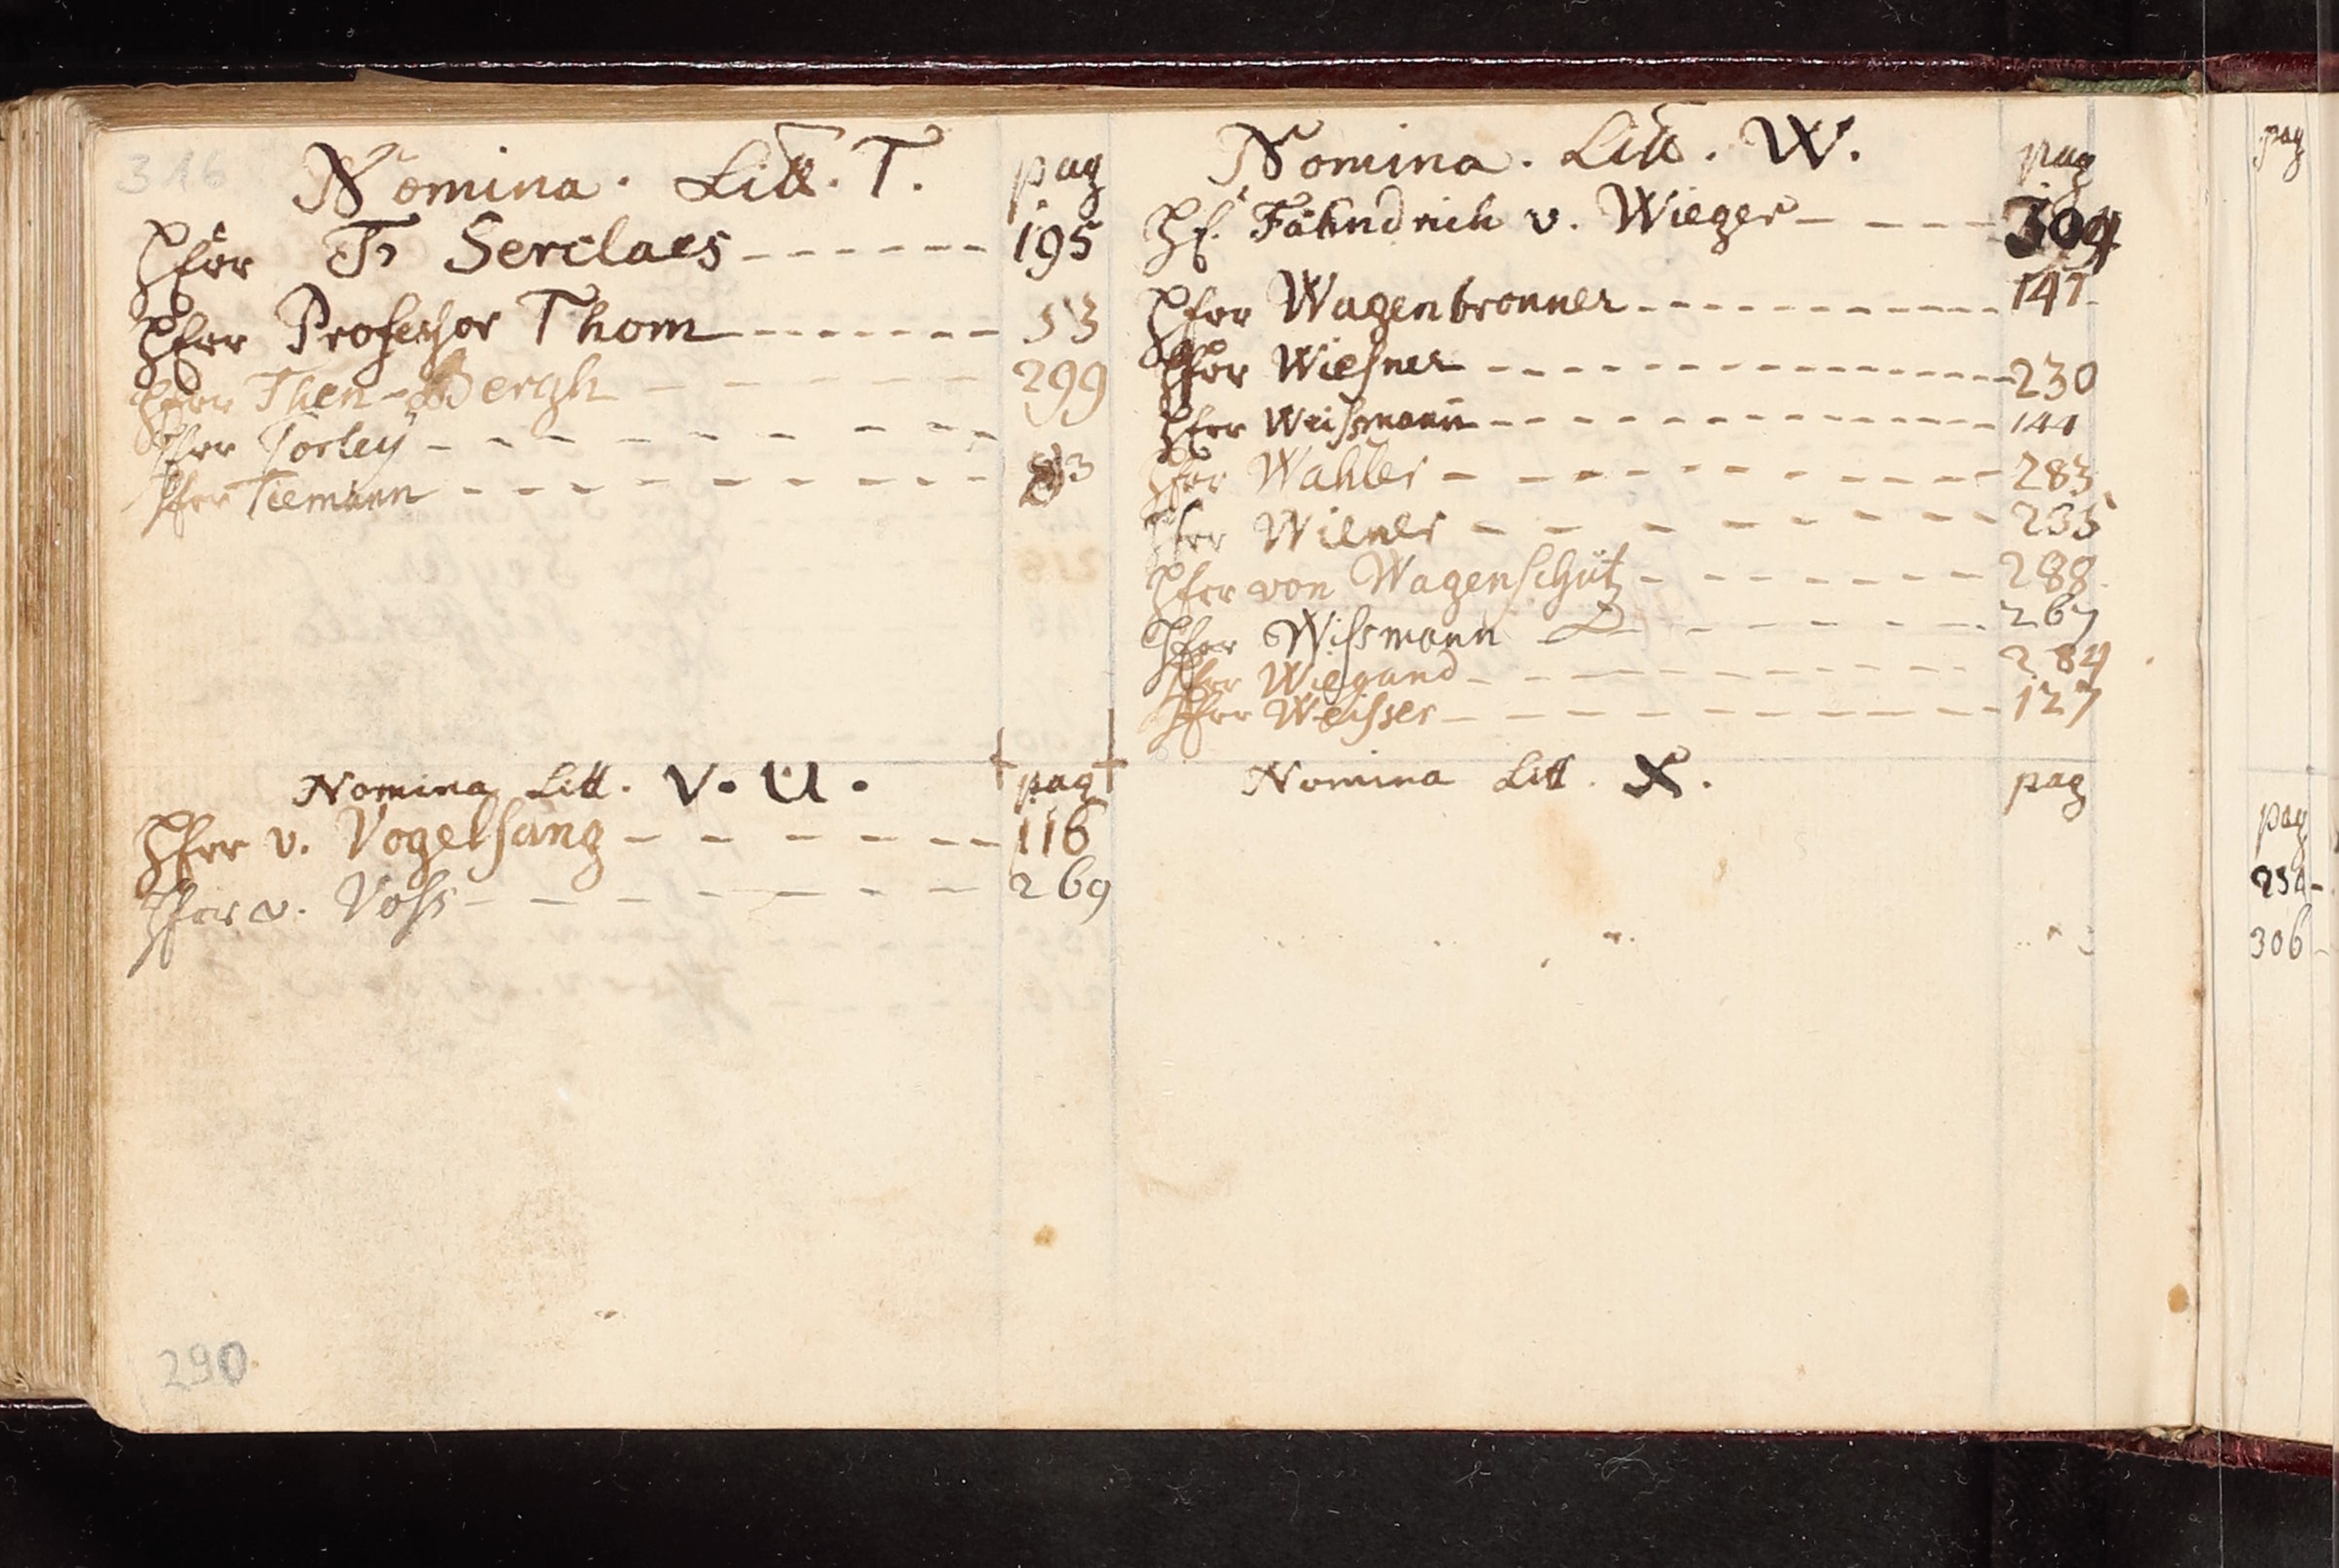 316
Nomina. Litt. T. pag
Herr T' Serclaes ------ 195
Herr Professor Thom ------- 53
Herr Then-Bergh ----- 299
Herr Torley - - - - - - - -
Herr Tiemann - - - - - - - - -
Nomina Litt. V. U. pag
Herr v. Vogelsang - - - - - - - 116
Herr v. Voss - - - - - - - 269
290
Nomina. Litt. W. pag
H. Fähndrich v. Wieger - - - - - 304
Herr Wagenbronner - - - - - - - - - - 147
Herr Wiesner - - - - - - - - - - - - 230
Herr Weissmann - - - - - - - - - - - - 144
Herr Wahler - - - - - - - - - 283
Herr Wiener - - - - - - - - 235
Herr von Wagenschütz - - - - - - - 288
Herr Wissmann - - - - - - 267
Herr Wiegand - - - - - - - - - 284
Herr Weisser - - - - - - - - - 127
Nomina Litt. X. pag
pag
pag
254-
306-